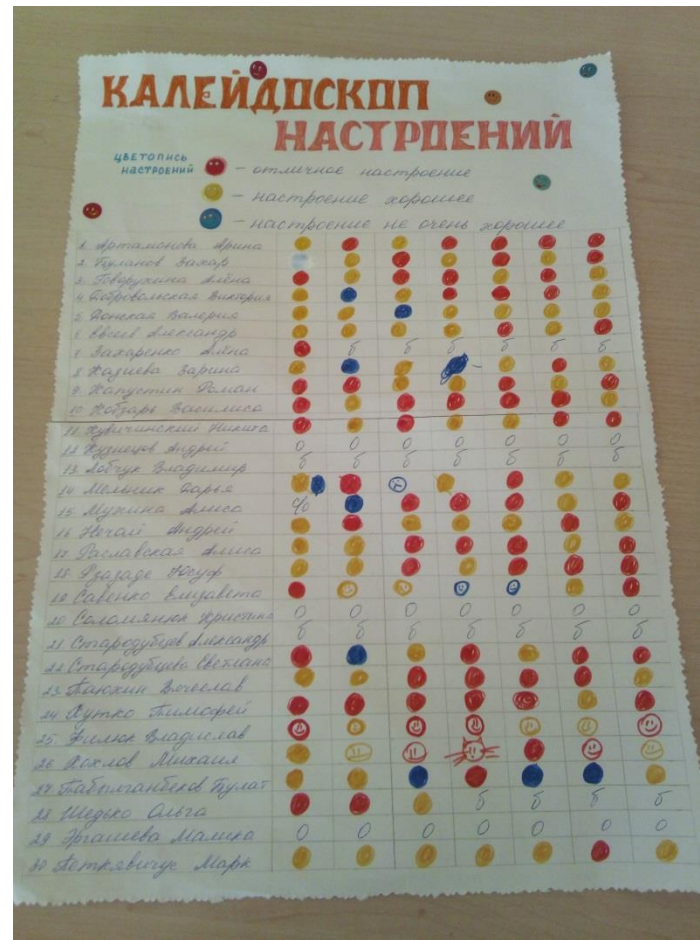 КАЛЕЙДОСКОП
НАСТРОЕНИЙ
ЦВЕТОПИСЬ
НАСТРОЕНИЙ
- отличное настроение
- настроение хорошее
- настроение не очень хорошее
1. Артамонова Арина
2. Буланов Захар
3. Говорухина Алёна
4. Добровольская Виктория
5. Донская Валерия
6. Евсеев Александр
7. Захаренко Алёна б б б б б б
8. Кадиева Зарина
9. Капустин Роман
10. Кобзарь Василиса
11. Кувичинский Никита
12. Кузнецов Андрей 0 0 0 0 0 0 0
13. Лобчук Владимир б б б б б б б
14. Мельник Дарья
15. Мухина Алиса с/о
16. Нечай Андрей
17. Раславская Алиса
18. Рзазаде Юсуф
19. Савенко Елизавета
20. Соломянюк Кристина 0 0 0 0 0 0 0
21. Стародубцев Александр б б б б б б б
22. Стародубцева Светлана
23. Вячеслав
24. Хутко Тимофей
25. Филюк Владислав
26. Хохлов Михаил
27. Табылганбеков Булат
28. Шедько Ольга б б б б
29. Эргашева Малика 0 0 0 0 0 0 0
30. Петкявичус Марк